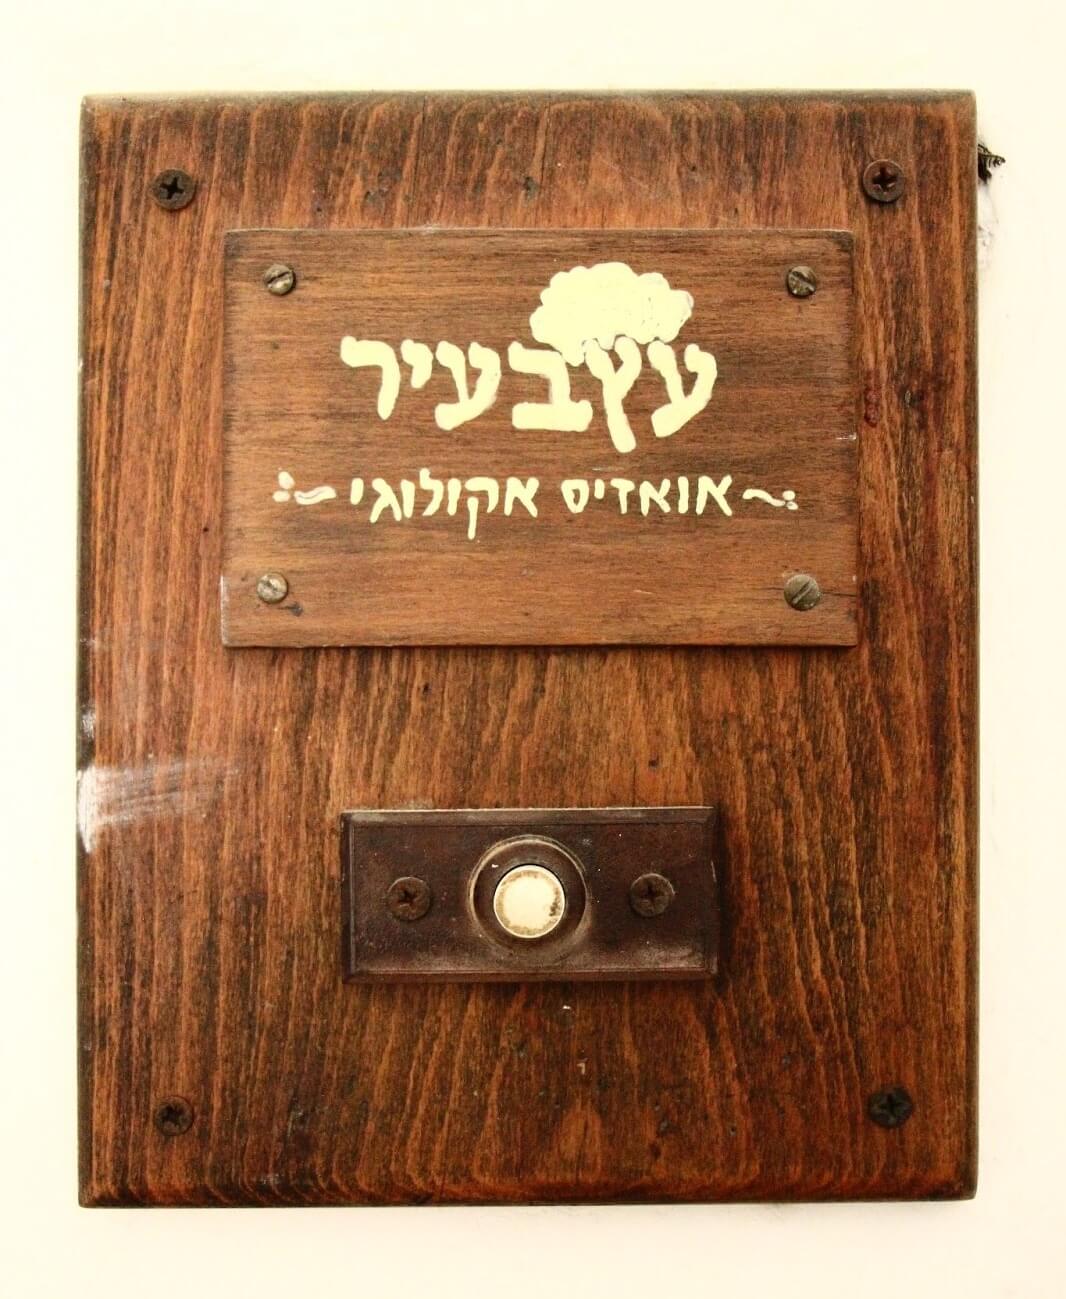 עץבעיר
אואזיס אקולוגי